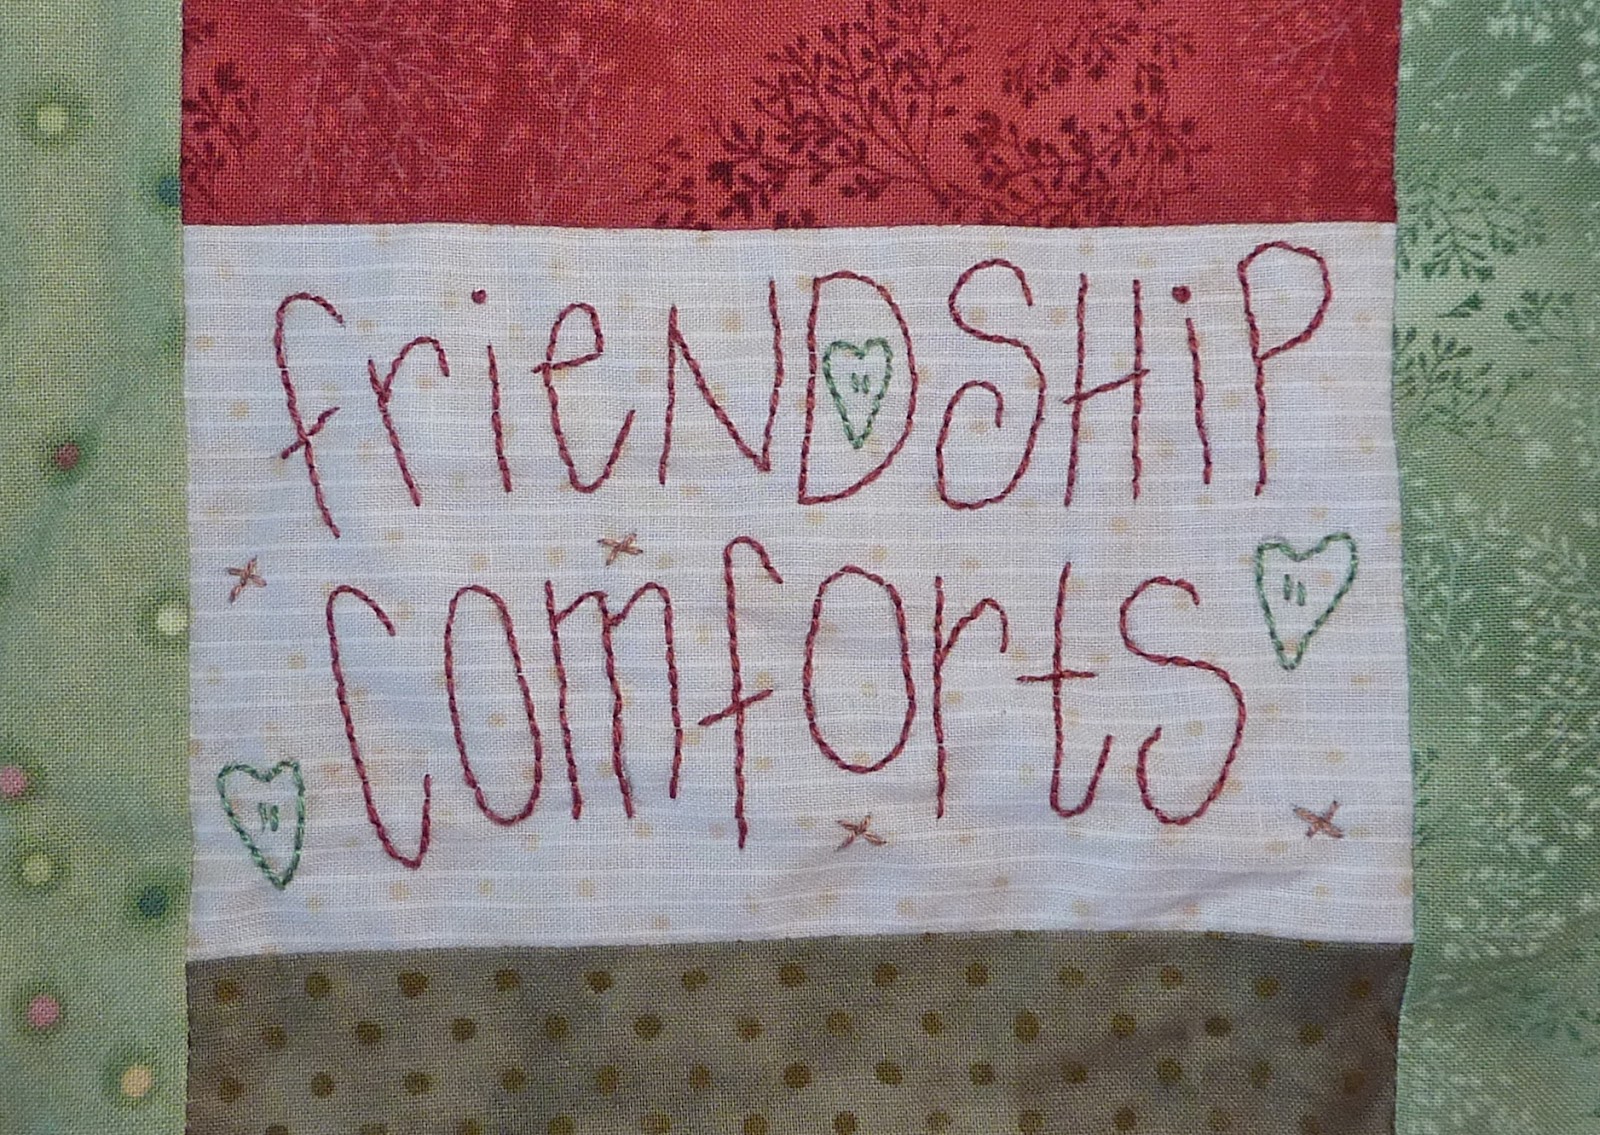 frieNDSHiP
comforts